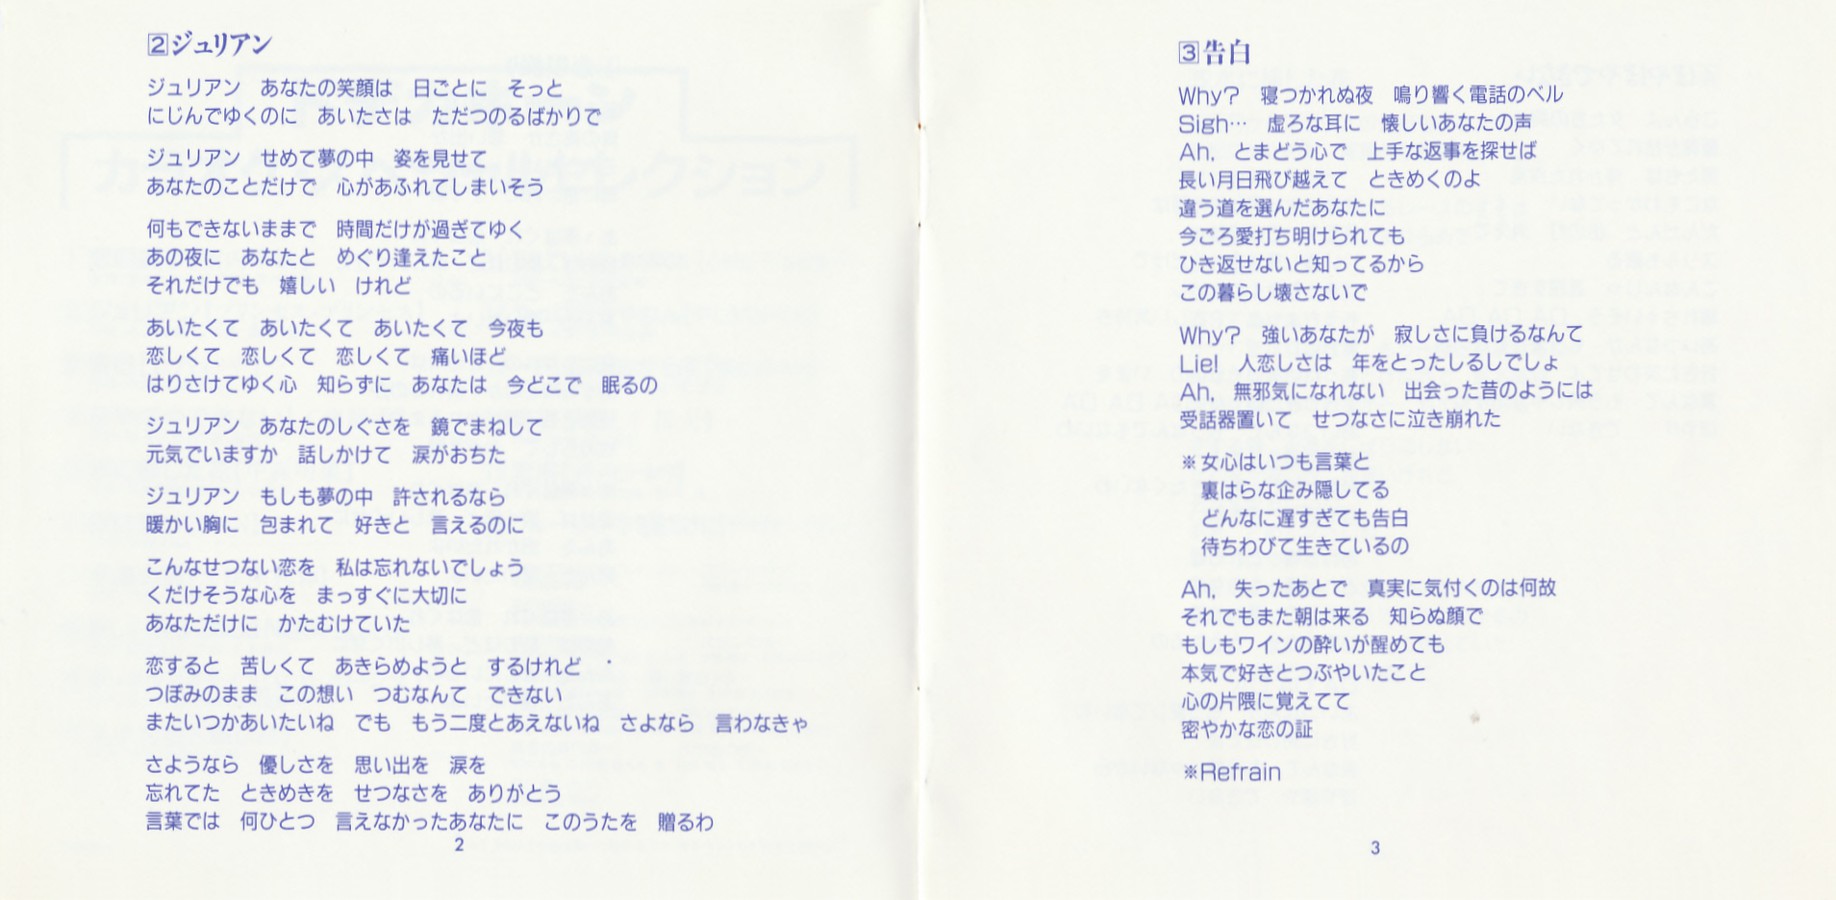 2 ジュリアン
ジュリアン　あなたの笑顔は　日ごとに　そっと
にじんでゆくのに　あいたさは　ただつのるばかりで
ジュリアン　せめて夢の中　姿を見せて
あなたのことだけで　心があふれてしまいそう
何もできないままで　時間だけが過ぎてゆく
あの夜に　あなたと　めぐり逢えたこと
それだけでも　嬉しい　けれど
あいたくて　あいたくて　あいたくて　今夜も
恋しくて　恋しくて　恋しくて　痛いほど
はりさけてゆく心　知らずに　あなたは　今どこで　眠るの
ジュリアン　あなたのしぐさを　鏡でまねして
元気でいますか　話しかけて　涙がおちた
ジュリアン　もしも夢の中　許されるなら
暖かい胸に　包まれて　好きと　言えるのに
こんなせつない恋を　私は忘れないでしょう
くだけそうな心を　まっすぐに大切に
あなただけに　かたむけていた
恋すると　苦しくて　あきらめようと　するけれど
つぼみのまま　この想い　つむなんて　できない
またいつかあいたいね　でも　もう二度とあえないね　さよなら　言わなきゃ
さようなら　優しさを　思い出を　涙を
忘れてた　ときめきを　せつなさを　ありがとう
言葉では　何ひとつ　言えなかったあなたに　このうたを　贈るわ
2
3 告白
Why?　寝つかれぬ夜　鳴り響く電話のベル
Sigh…　虚ろな耳に　懐しいあなたの声
Ah,　とまどう心で　上手な返事を探せば
長い月日飛び越えて　ときめくのよ
違う道を選んだあなたに
今ごろ愛打ち明けられても
ひき返せないと知ってるから
この暮らし壊さないで
Why?　強いあなたが　寂しさに負けるなんて
Lie!　人恋しさは　年をとったしるしでしょ
Ah,　無邪気になれない　出会った昔のようには
受話器置いて　せつなさに泣き崩れた
※女心はいつも言葉と
裏はらな企み隠してる
どんなに遅すぎても告白
待ちわびて生きているの
Ah,　失ったあとで　真実に気付くのは何故
それでもまた朝は来る　知らぬ顔で
もしもワインの酔いが醒めても
本気で好きとつぶやいたこと
心の片隅に覚えてて
密やかな恋の証
※Refrain
3